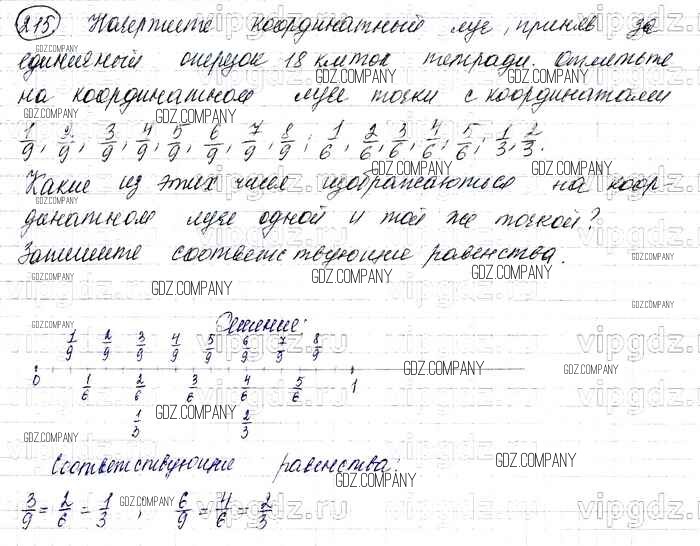 215. Начертите координатный луч, приняв за
единичный отрезок 18 клеток тетради. Отметьте
на координатном луче точки с координатами
1/9, 2/9, 3/9, 4/9, 5/9, 6/9, 7/9, 8/9, 1/6, 2/6, 3/6, 4/6, 5/6, 1/3, 2/3.
Какие из этих чисел изображаются на коор-
динатном луче одной и той же точкой?
Запишите соответствующие равенства.
Решение:
1/9 2/9 3/9 4/9 5/9 6/9 7/9 8/9
0 1/6 2/6 3/6 4/6 5/6 1
1/3 2/3
Соответствующие равенства:
3/9 = 2/6 = 1/3 , 6/9 = 4/6 = 2/3
GDZ.COMPANY
vipgdz.ru